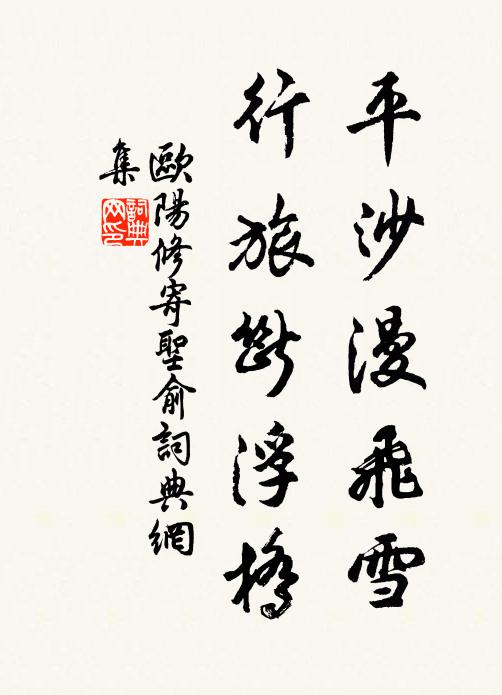 平沙漫飛雪
行旅斷浮橋
歐陽修寄聖俞詞典網
集
詞典
网印